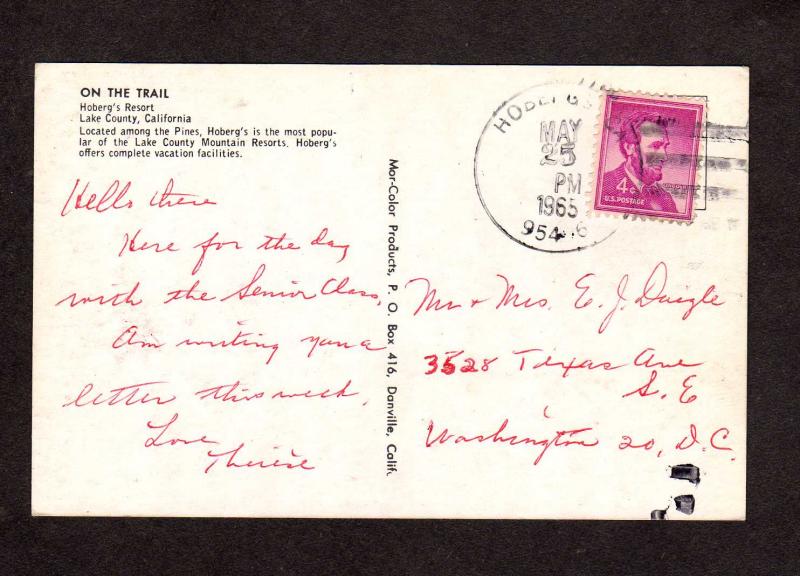 ON THE TRAIL
Hoberg's Resort
Lake County, California
Located among the Pines, Hoberg's is the most popu-
lar of the Lake County Mountain Resorts. Hoberg's
offers complete vacation facilities.
Hello there
Here for the day
with the Senior Class.
Am writing you a
letter this week.
Love
Therese
Mor-Color Products, P. O. Box 416, Danville, Calif.
HOBERGS
MAY
25
PM
1965
4¢
U.S. POSTAGE
Mr + Mrs. E. J. Daigle
3528 Texas Ave
S. E
Washington 20, D.C.